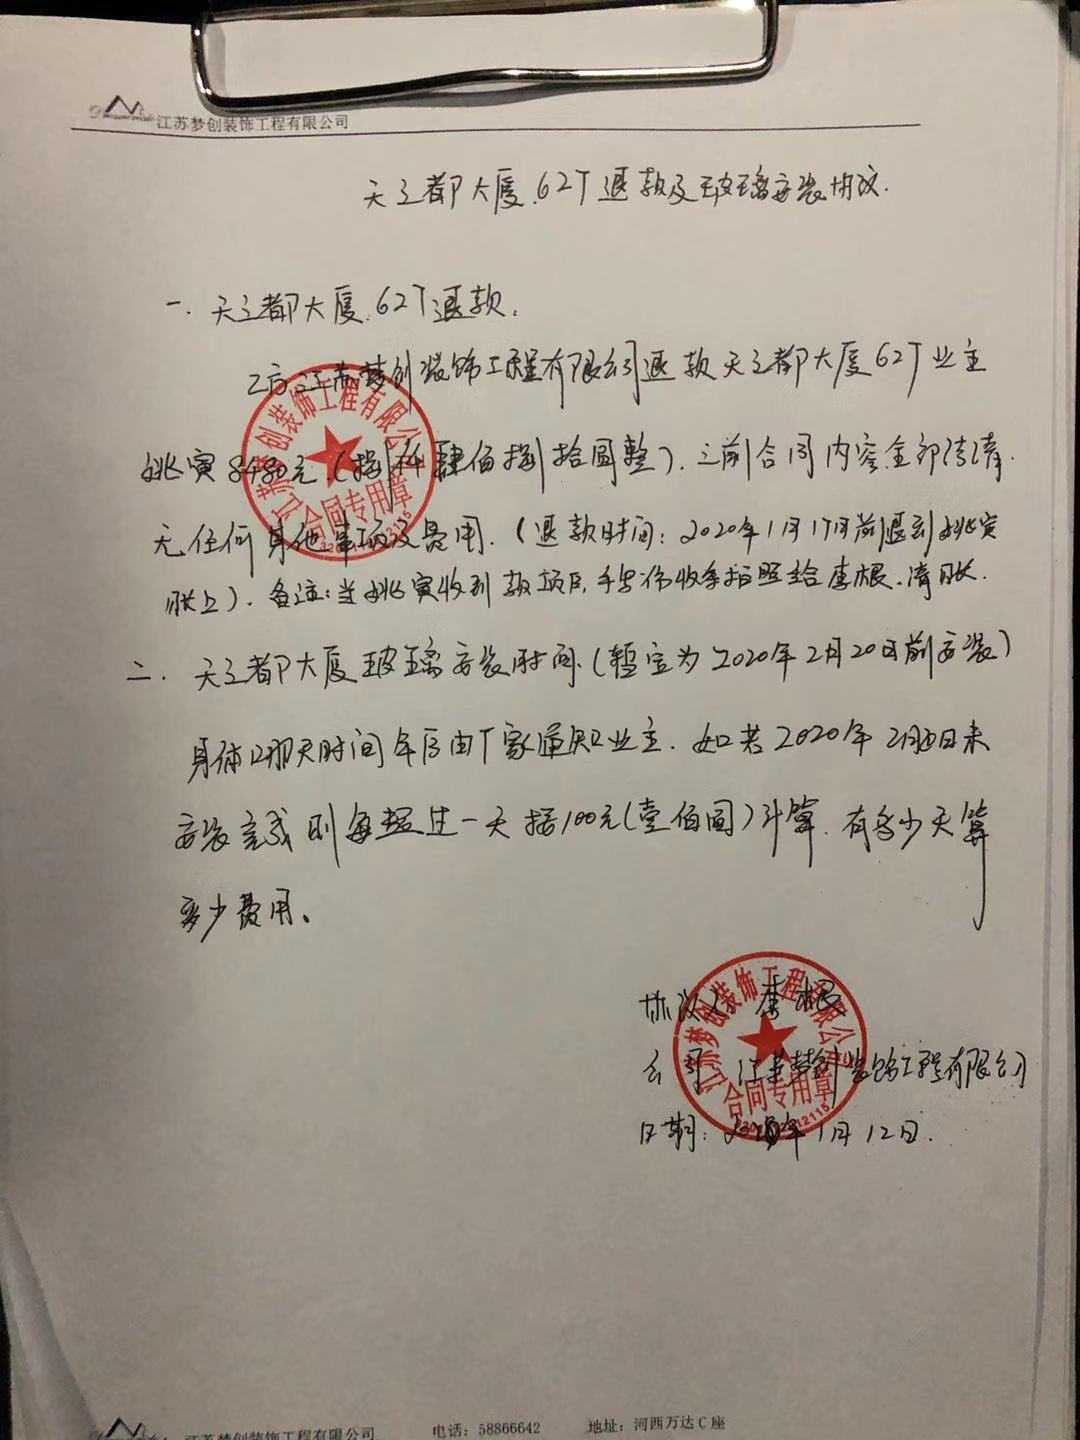 江苏梦创装饰工程有限公司
天之都大厦.62T退款及玻璃安装协议.
一.天之都大厦.62T退款.
乙方江苏梦创装饰工程有限公司退款天之都大厦62T业主
姚寅8480元.(捌仟肆佰捌拾圆整).之前合同内容全部结清.
无任何其他事项及费用.(退款时间:2020年1月17日前退到姚寅
账上).备注:当姚寅收到款项后,手写收条拍照给李根.清账.
二.天之都大厦玻璃安装时间.(暂定为2020年2月20日前安装)
具体哪天时间年后由厂家通知业主.如若2020年2月 日未
安装完成则每超过一天按100元(壹佰圆)计算.有多少天算
多少费用、
协议人 李根
公司 江苏梦创装饰工程有限公司
日期:2020年1月12日.
江苏梦创装饰工程有限公司
合同专用章
江苏梦创装饰工程有限公司
合同专用章
江苏梦创装饰工程有限公司 电话:58866642 地址:河西万达C座